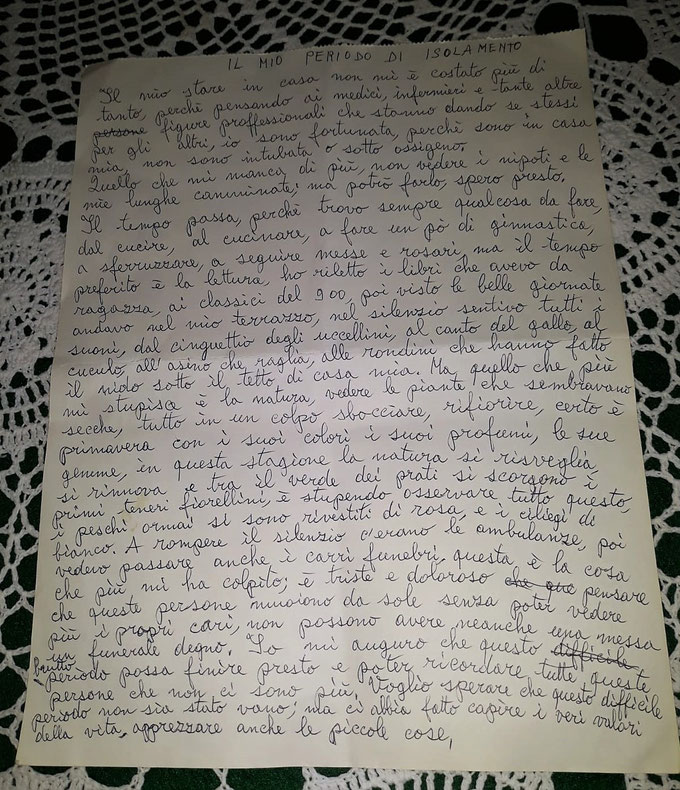 IL MIO PERIODO DI ISOLAMENTO
Il mio stare in casa non mi è costato più di
tanto, perchè pensando ai medici, infermieri e tante altre
persone figure proffessionali che stanno dando se stessi
per gli altri, io sono fortunata, perchè sono in casa
mia, non sono intubata o sotto ossigeno.
Quello che mi manca di più, non vedere i nipoti e le
mie lunghe camminate; ma potrò farlo, spero presto.
Il tempo passa, perchè trovo sempre qualcosa da fare,
dal cucire, al cucinare, a fare un pò di ginnastica,
a sferruzzare, a seguire messe e rosari, ma il tempo
preferito è la lettura, ho riletto i libri che avevo da
ragazza, ai classici del 900, poi visto le belle giornate
andavo nel mio terrazzo, nel silenzio sentivo tutti i
suoni, dal cinguettio degli uccellini, al canto del gallo, al
cuculo, all'asino che raglia, alle rondini che hanno fatto
il nido sotto il tetto di casa mia. Ma quello che più
mi stupisce è la natura, vedere le piante che sembravano
secche, tutto in un colpo sbocciare, rifiorire, certo è
primavera con i suoi colori i suoi profumi, le sue
gemme, in questa stagione la natura si risveglia,
si rinnova e tra il verde dei prati si scorgono i
primi teneri fiorellini, è stupendo osservare tutto questo,
i peschi ormai si sono rivestiti di rosa, e i ciliegi di
bianco. A rompere il silenzio c'erano le ambulanze, poi
vedevo passare anche i carri funebri, questa è la cosa
che più mi ha colpito; è triste e doloroso che que pensare
che queste persone muoiono da sole senza poter vedere
più i propri cari, non possono avere neanche una messa
un funerale degno. Io mi auguro che questo difficile
brutto periodo possa finire presto e poter ricordare tutte queste
persone che non ci sono più. Voglio sperare che questo difficile
periodo non sia stato vano; ma ci abbia fatto capire i veri valori
della vita, apprezzare anche le piccole cose,